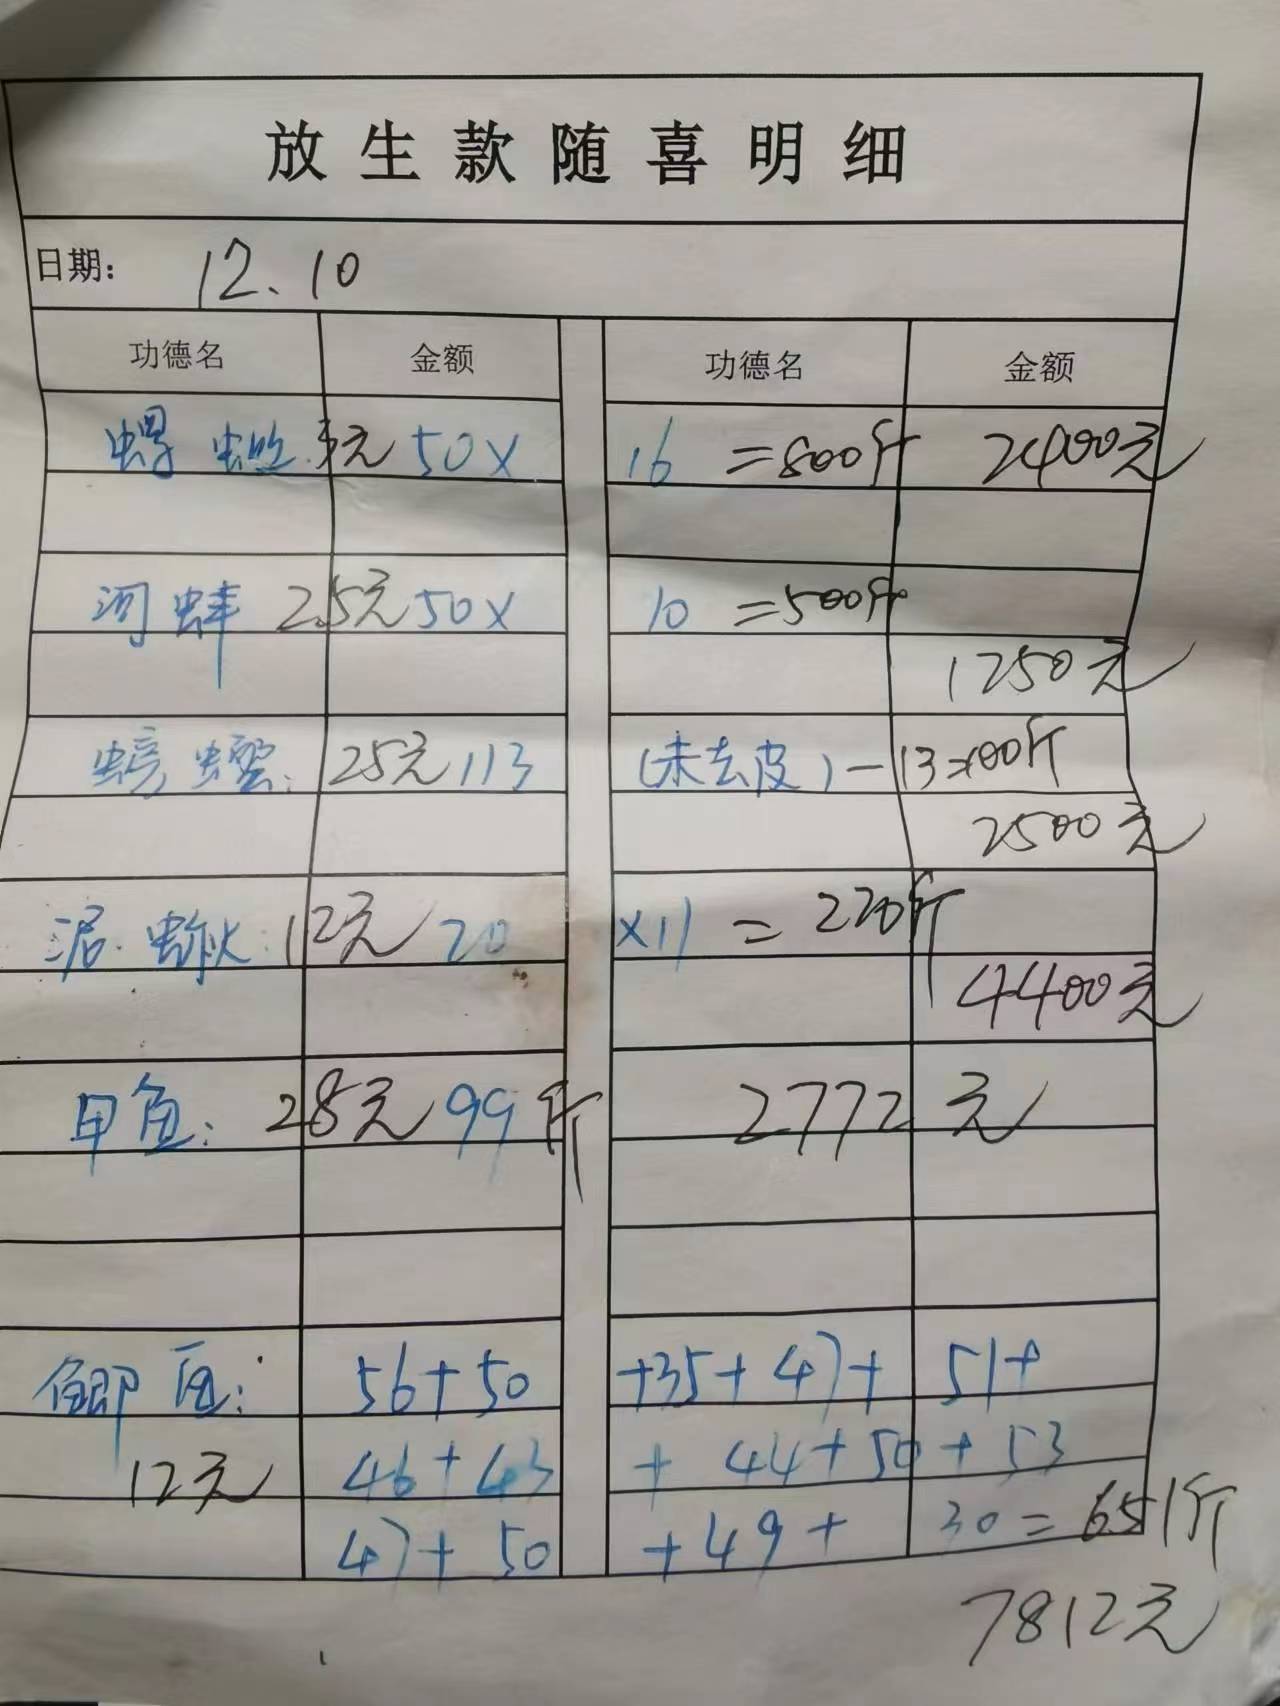 放生款随喜明细
日期: 12.10
功德名 金额 功德名 金额
螺蛳.3元 50× 16 =800斤 2400元
河蚌 2.5元 50× 10 =500斤
1250元
螃蟹: 25元 113 (未去皮)-13=100斤
2500元
泥鳅:12元 20 ×11 = 220斤
4400元
甲鱼: 28元 99斤 2772元
鲫鱼: 56+50 +35+47+ 51+
12元 46+43 + 44+50+53
47+50 +49+ 30=651斤
7812元